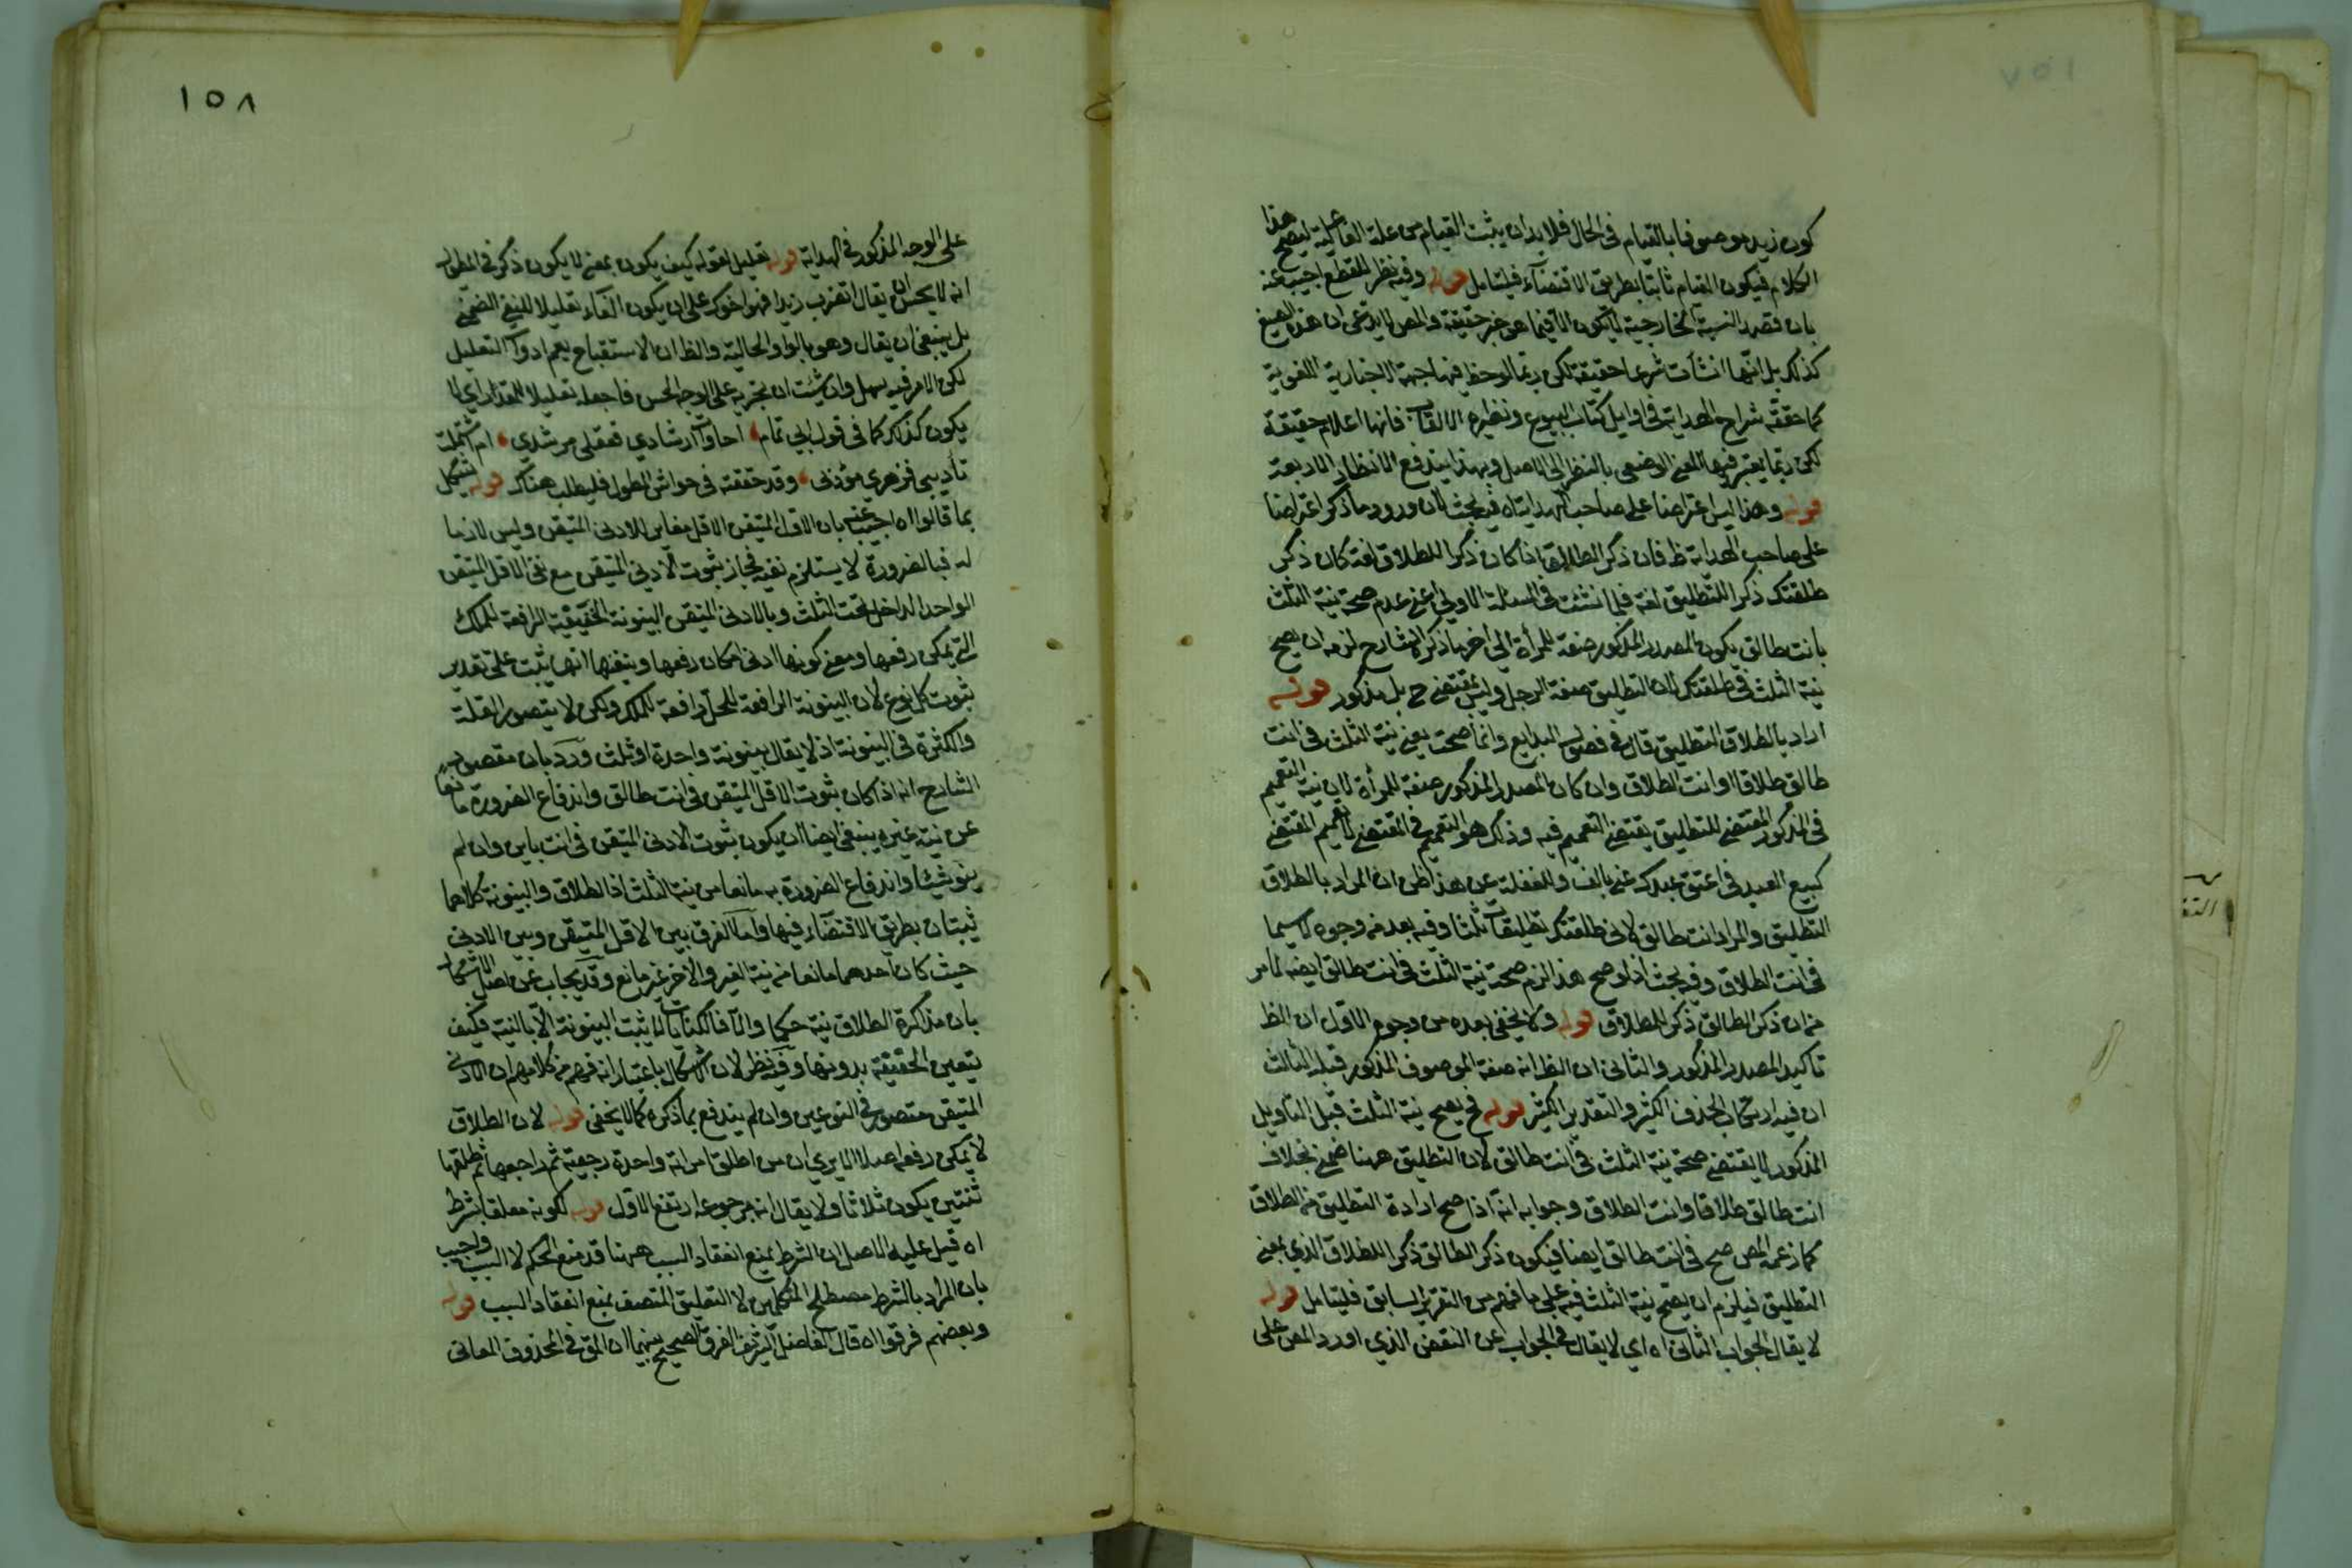 كون زيد موصوفا بالقيام في الحال فلا بد ان يثبت القيام من علة الفاعلية ليصح هذا
الكلام فيكون القيام ثابتا بطريق الاقتضاء فليتامل قوله وفيه نظر للقطع اجيب عنه
بان قصد النسبة الخارجية لا يكون الا فيما هو خبر حقيقة والمص لا يدعي ان هذه الصيغ
كذلك بل انها انشأت شرعا حقيقة لكن ربما لوحظ فيها جهة الاخبارية اللغوية
كما حققه شراح الهداية في اوايل كتاب البيوع ونظيره الالقاب فانها اعلام حقيقة
لكن ربما يعتبر فيها المعنى الوضعي بالنظر الى الاصل وبهذا يندفع الانظار الاربعة
قوله وهذا ليس اعتراضا على صاحب الهداية اه فيه بحث لان ورود ما ذكر اعتراضا
على صاحب الهداية ظ فان ذكر الطالق اذا كان ذكرا للطلاق لغة كان ذكر
طلقتك ذكرا للتطليق لغة فلما نشئت في المسئلة الاولى اعني عدم صحة نية الثلث
بانت طالق يكون المصدر المذكور صفة للمرأة الى اخر ما ذكر الشارح لزمه ان يصح
نية الثلث في طلقتك لان التطليق صفة الرجل وليس بمقتضى ح بل مذكور قوله
اراد بالطلاق التطليق قال في فصول البدايع وانما صحت يعني نية الثلث في انت
طالق طلاقا او انت الطلاق وان كان المصدر المذكور صفة للمرأة لان نية التعميم
في المذكور المقتضى للتطليق يقتضي التعميم فيه وذلك هو التعميم في المقتضي لا تعميم المقتضى
كبيع العبد في اعتق عبدك عني بالف والغفلة عن هذا ظن ان المراد بالطلاق
التطليق والمراد انت طالق لاني طلقتك تطليقات ثلثا وفيه بعد من وجوه لا سيما
في انت الطلاق وفيه بحث اذ لو صح هذا لزم صحة نية الثلث في انت طالق ايضا لما مر
من ان ذكر الطالق ذكر للطلاق قوله ولا يخفى بعده من وجوه الاول ان الظ
تاكيد المصدر المذكور والثاني ان الظ انه صفة الموصوف المذكور قبله الثالث
ان فيه ارتكاب الحذف الكثير والتقدير الكثير قوله فح يصح نية الثلث قيل التاويل
المذكور لا يقتضي صحة نية الثلث في انت طالق لان التطليق ههنا ضمني بخلاف
انت طالق طلاقا وانت الطلاق وجوابه انه اذا صح ارادة التطليق من الطلاق
كما زعمه المص صح في انت طالق ايضا فيكون ذكر الطالق ذكرا للطلاق الذي بمعنى
التطليق فيلزم ان يصح نية الثلث فيه على ما فهم من التقرير السابق فليتامل قوله
لا يقال الجواب الثاني اه اي لا يقال في الجواب عن النقض الذي اورد المص على
١٥٨
على الوجه المذكور في الهداية قوله تعليل لقوله كيف يكون بمعنى لا يكون ذكر في المطول
انه لا يحسن ان يقال اتضرب زيدا فهو اخوك على ان يكون الفاء تعليلا للنفي الضمني
بل ينبغي ان يقال وهو بالواو الحالية والظ ان الاستقباح يعم ادوات التعليل
لكن الامر فيه سهل وان شئت ان تجريه على الوجه الحسن فاجعله تعليلا للمقدر اي لا
يكون كذلك كما في قول ابي تمام احاولت ارشادي فعقلي مرشدي ام اشتملت
تأديبي فدهري مؤدبي وقد حققته في حواشي المطول فليطلب هناك قوله يشكل
بما قالوا اه اجيب عنه بان الاقل المتيقن الاقل مغاير للادنى المتيقن وليس لازما
له فبالضرورة لا يستلزم نفيه فجاز ثبوت الادنى المتيقن مع نفي الاقل المتيقن
الواحد الداخل تحت الثلث وبالادنى المتيقن البينونة الخفيفة الرافعة للملك
التي يمكن رفعها ومعنى كونها ادنى امكان رفعها وتيقنها انها يثبت على تقدير
ثبوت كل نوع لان البينونة الرافعة للحل رافعة للملك ولكن لا يتصور القلة
والكثرة في البينونة اذ لا يقال بينونة واحدة او ثلث ورد بان مقصود
الشارح انه اذا كان ثبوت الاقل المتيقن في انت طالق واندفاع الضرورة مانعا
عن نية غيره ينبغي ايضا ان يكون ثبوت الادنى المتيقن في انت باين وان لم
ينو شيئا واندفاع الضرورة به مانعا من نية الثلث اذ الطلاق والبينونة كلاهما
يثبتان بطريق الاقتضاء فيها واما الفرق بين الاقل المتيقن وبين الادنى
حيث كان احدهما مانعا من نية الغير والآخر غير مانع وقد يجاب عن اصل الاشكال
بان مذاكرة الطلاق نية حكما والا فالكنايات لا يثبت البينونة الا بالنية فكيف
يتعين الحقيقة بدونها وفيه نظر لان الاشكال باعتبار انه فهم من كلامهم ان الادنى
المتيقن متصور في النوعين وان لم يندفع بما ذكره كما لا يخفى قوله لان الطلاق
لا يمكن رفعه اصلا الا يرى ان من اطلق امراته واحدة رجعية ثم راجعها ثم طلقها
ثنتين يكون ثلاثا ولا يقال انه برجوعه ارتفع الاول قوله لكونه معلقا بشرط
اه قيل عليه الاصل ان الشرط يمنع انعقاد السبب ههنا قد منع الحكم لا السبب واجيب
بان المراد بالشرط مصطلح المتكلمين لا التعليق المتصف بمنع انعقاد السبب قوله
وبعضهم فرقوا اه قال الفاضل الشريف الفرق الصحيح بينهما ان المق في المحذوف المعاني